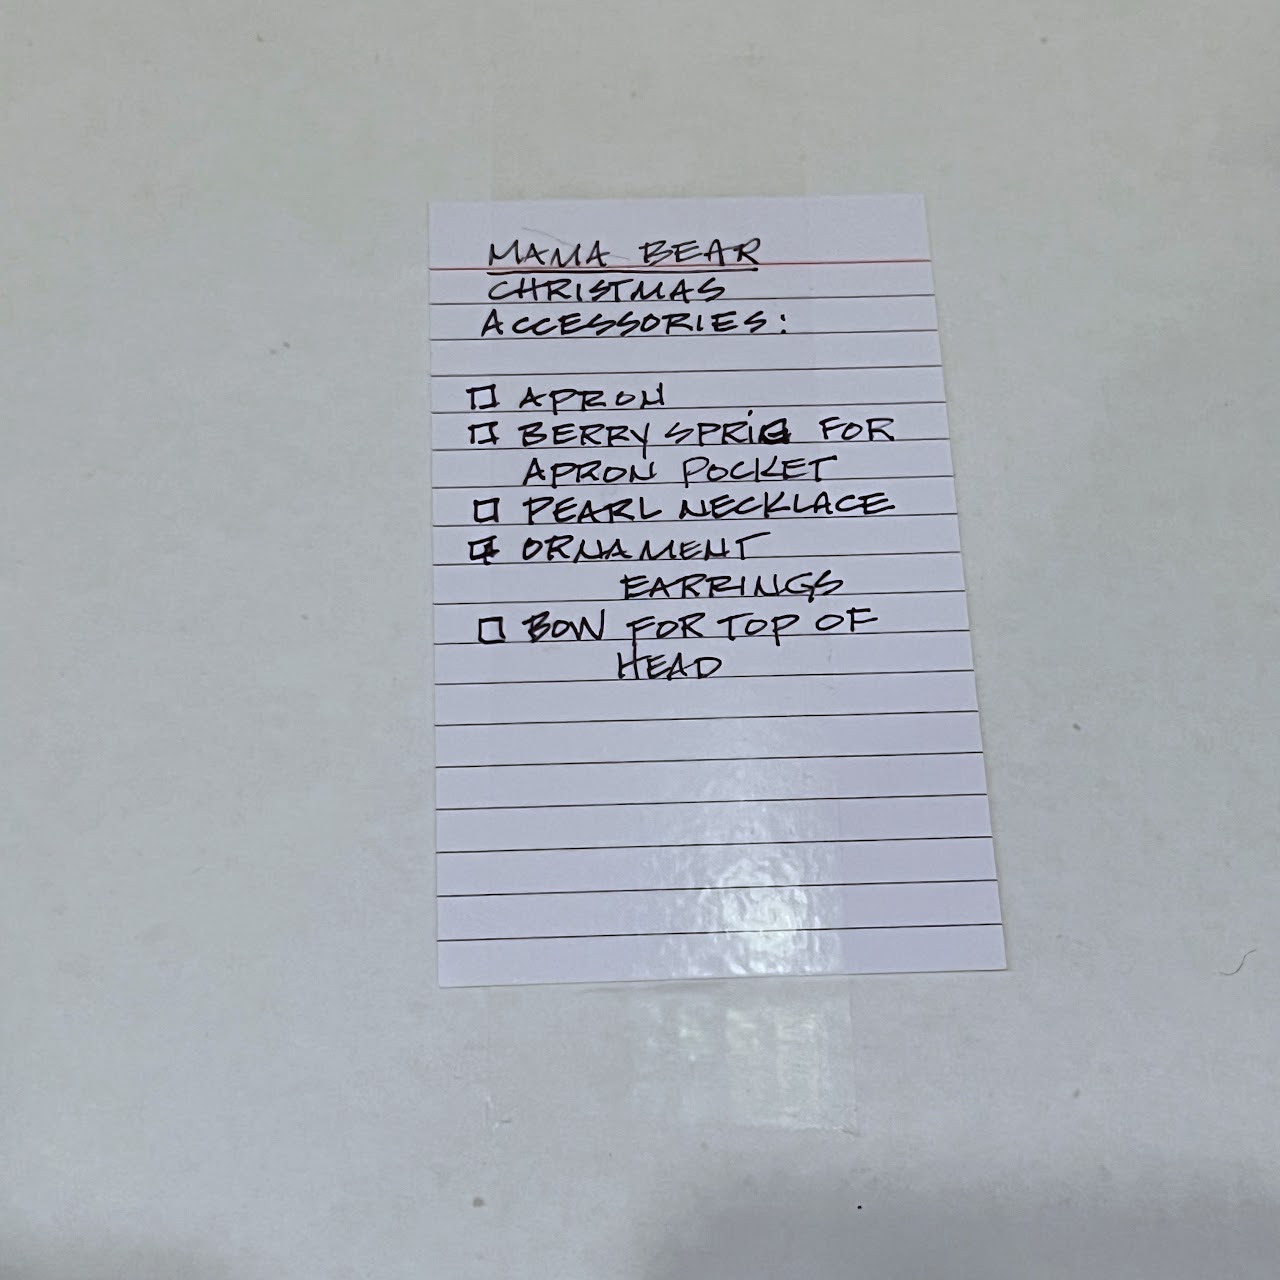 MAMA BEAR
CHRISTMAS
ACCESSORIES:
☐ APRON
☐ BERRY SPRIG FOR
APRON POCKET
☐ PEARL NECKLACE
☐ ORNAMENT
EARRINGS
☐ BOW FOR TOP OF
HEAD